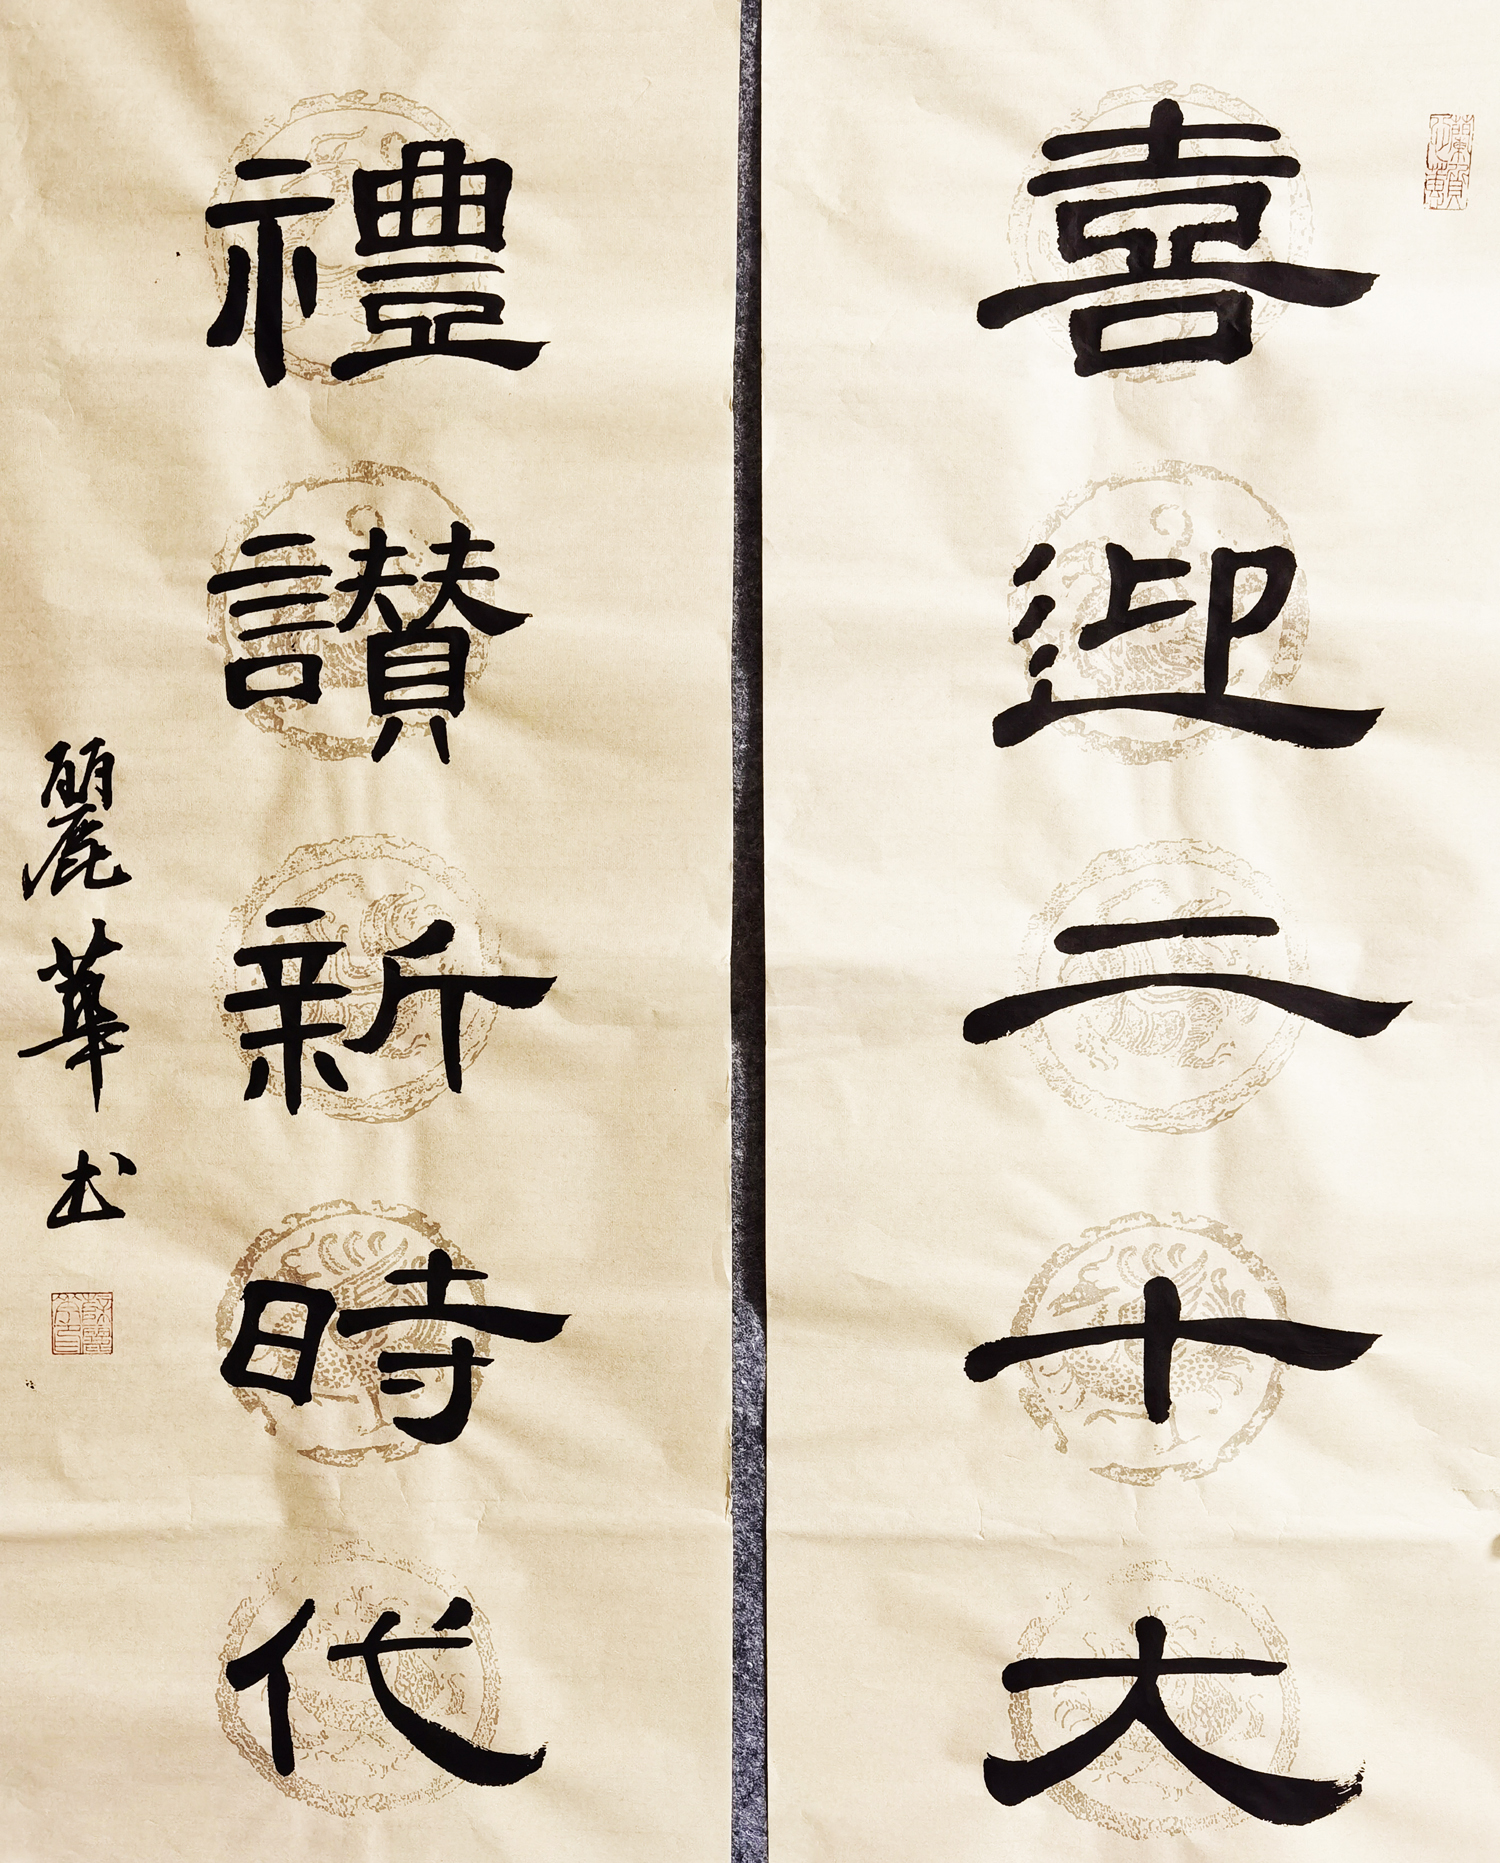 喜迎二十大
禮讃新時代
麗華书